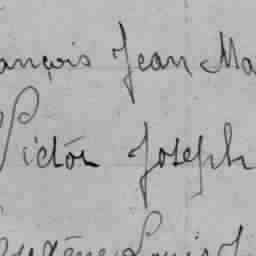 ançois Jean Ma
Victor Joseph
Eugène Louis J